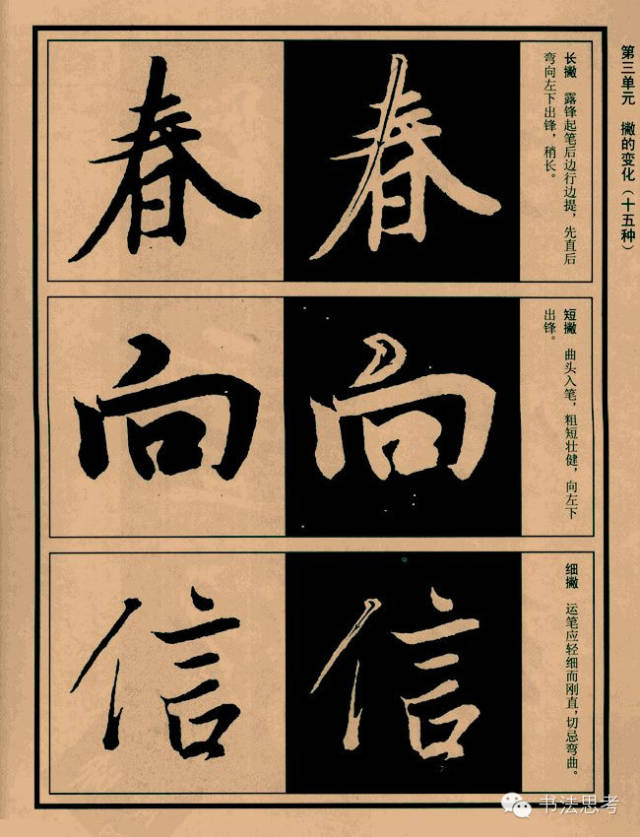 第三单元 撇的变化（十五种）
长撇 露锋起笔后边行边提，先直后
弯向左下出锋，稍长。
春 春
短撇 曲头入笔，粗短壮健，向左下
出锋。
向 向
细撇 运笔应轻细而刚直，切忌弯曲。
信 信
书法思考